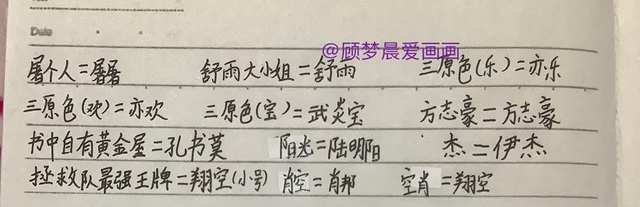 Date
@顾梦晨爱画画
屠个人=屠屠 舒雨大小姐=舒雨 三原色(乐)=亦乐
三原色(欢)=亦欢 三原色(宝)=武炎宝 方志豪=方志豪
书中自有黄金屋=孔书莫 阳光=陆明阳 杰=伊杰
拯救队最强王牌=翔空(小号) 肖空=肖邦 空肖=翔空